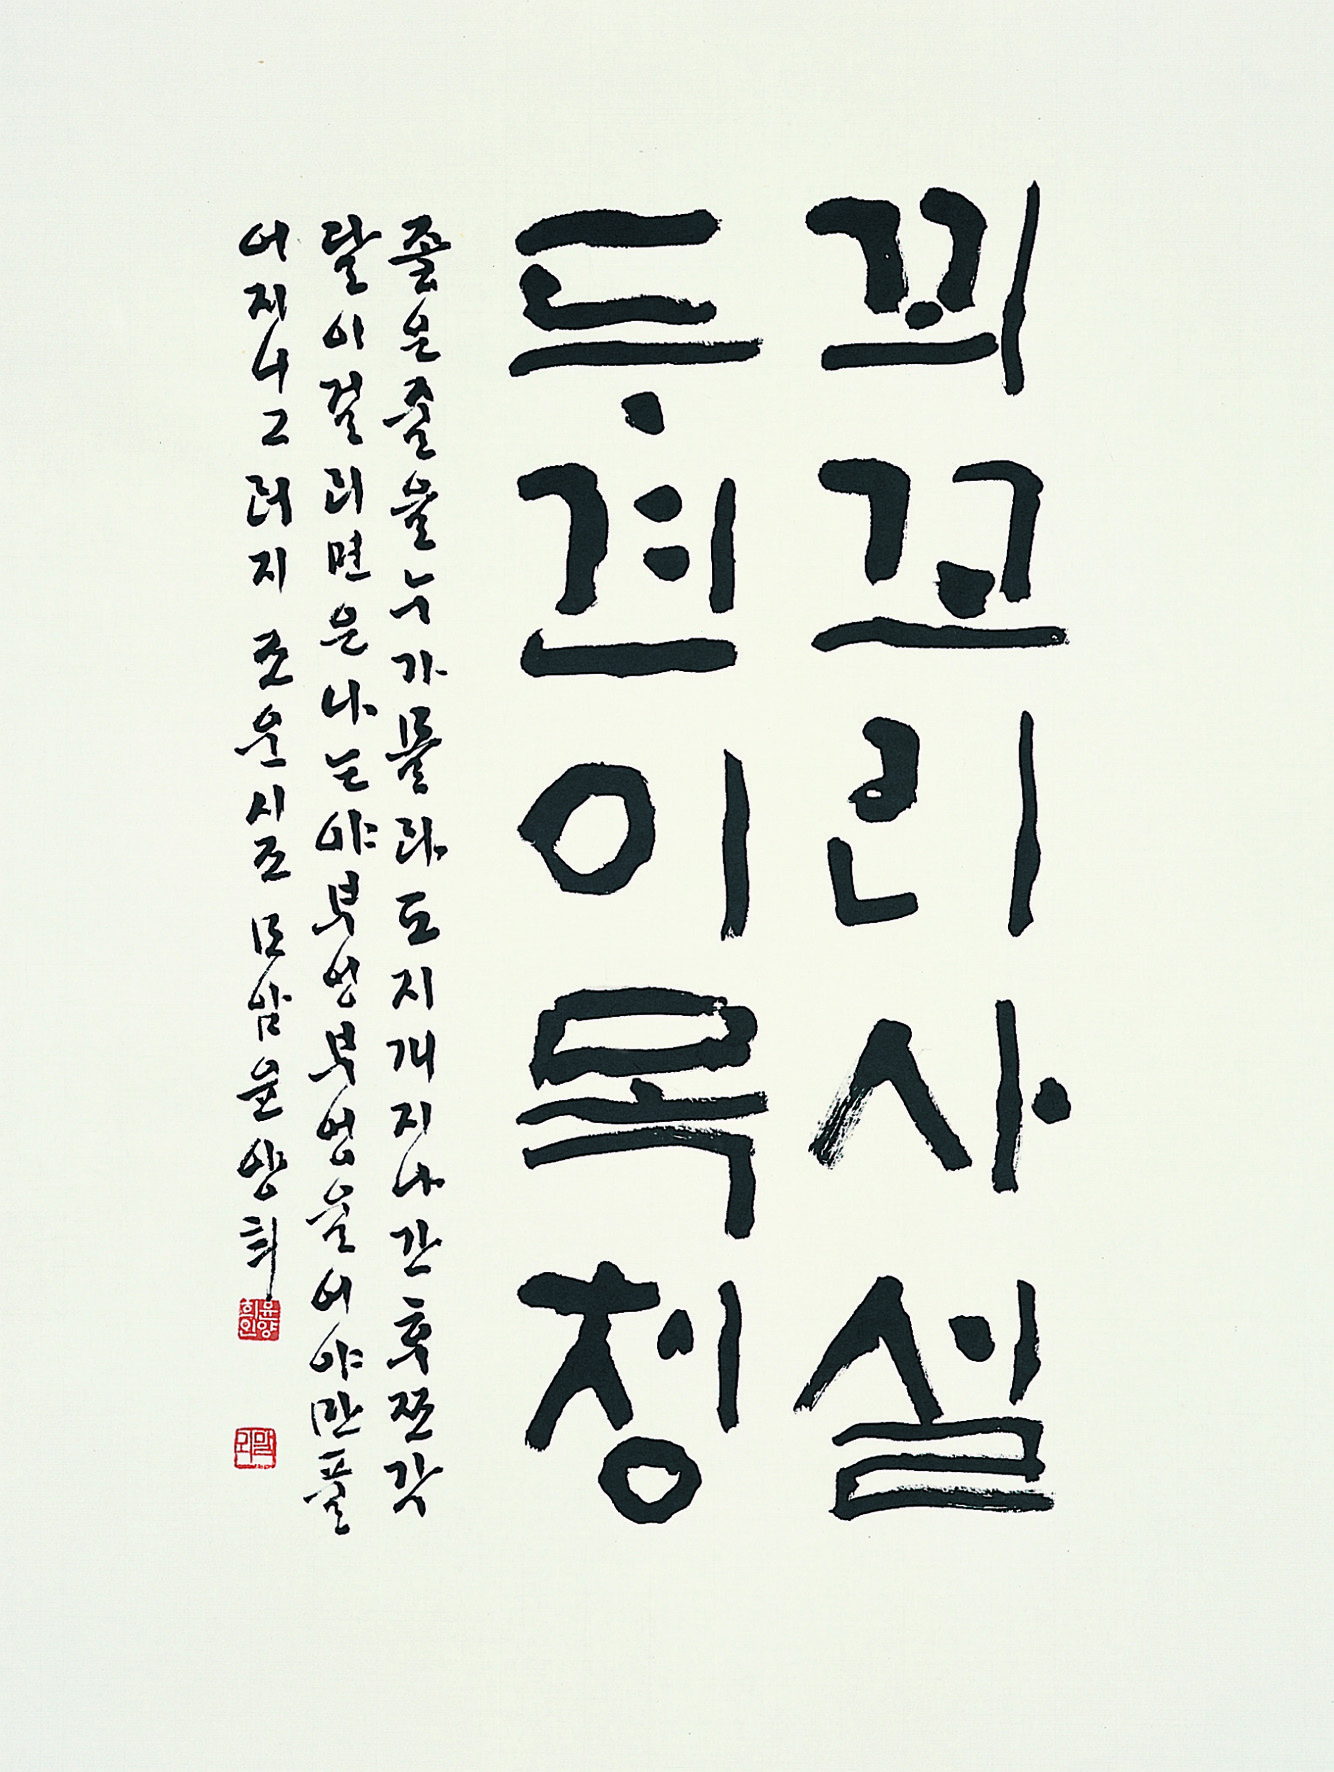 꾀꼬리사설
두견이목청
좋은줄을누가몰라도지개지나간후쪼각
달이걸리면은나는야부엉부엉울어야만풀
어지니그러지 조운시조 모암윤양희
윤양희인